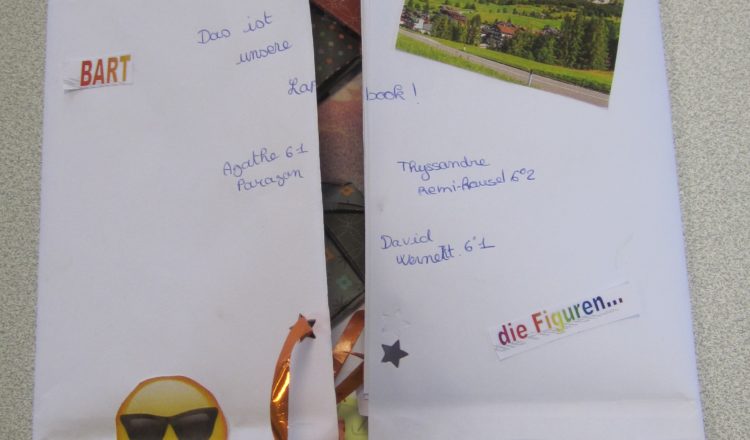 BART
Das ist
unsere
Lap book!
Agathe 61
Paragan
Thyssandre
Remi-Rousel 6°2
David
6°1
die Figuren...